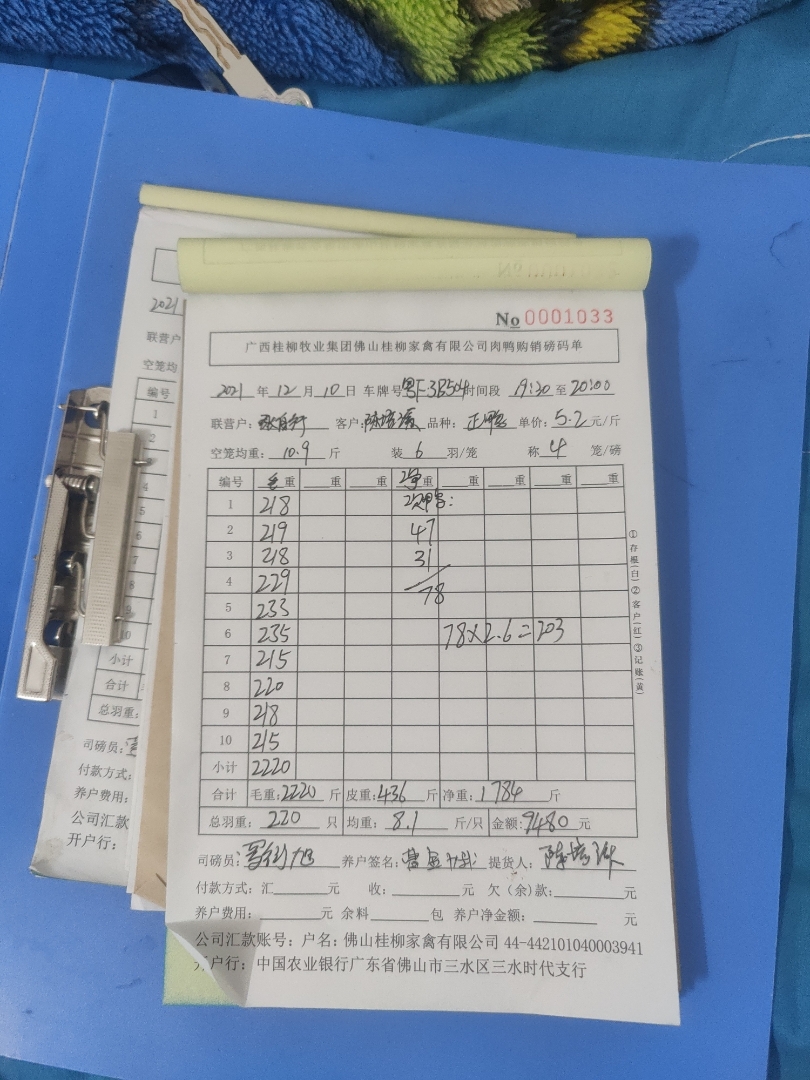 No 0001033
广西桂柳牧业集团佛山桂柳家禽有限公司肉鸭购销磅码单
2021 年 12 月 10 日 车牌号 粤F3B504 时间段 19:30 至 20:00
联营户: 客户: 品种: 正鸭 单价: 5.2 元/斤
空笼均重: 10.9 斤 装 6 羽/笼 称 4 笼/磅
编号 毛重 重 重 重 重 重 重 重
1 218
2 219 47
3 218 31
4 229 78
5 233
6 235 78×2.6=203
7 215
8 220
9 218
10 215
小计 2220
合计 毛重: 2220 斤 皮重: 436 斤 净重: 1784 斤
总羽重: 220 只 均重: 8.1 斤/只 金额: 9480 元
司磅员: 养户签名: 提货人:
付款方式: 汇 元 收: 元 欠(余)款: 元
养户费用: 元 余料 包 养户净金额: 元
公司汇款账号: 户名: 佛山桂柳家禽有限公司 44-442101040003941
户行: 中国农业银行广东省佛山市三水区三水时代支行
①存根(白)②客户(红)③记账(黄)
2021
联营户
空笼均
编号
1
2
3
4
5
6
7
8
9
10
小计
合计
总羽重:
司磅员:
付款方式:
养户费用:
公司汇款
开户行: